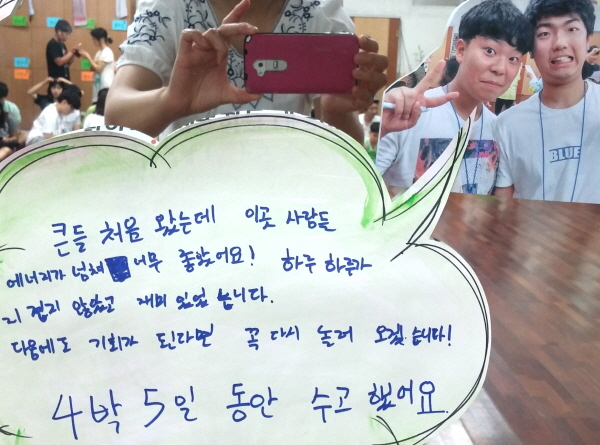 큰들 처음 왔는데 이곳 사람들
에너지가 넘쳐 너무 좋았어요! 하루 하루가
지겹지 않았고 재미 있었습니다.
다음에도 기회가 된다면 꼭 다시 놀러 오겠습니다!
4박 5일 동안 수고 했어요
BLUE